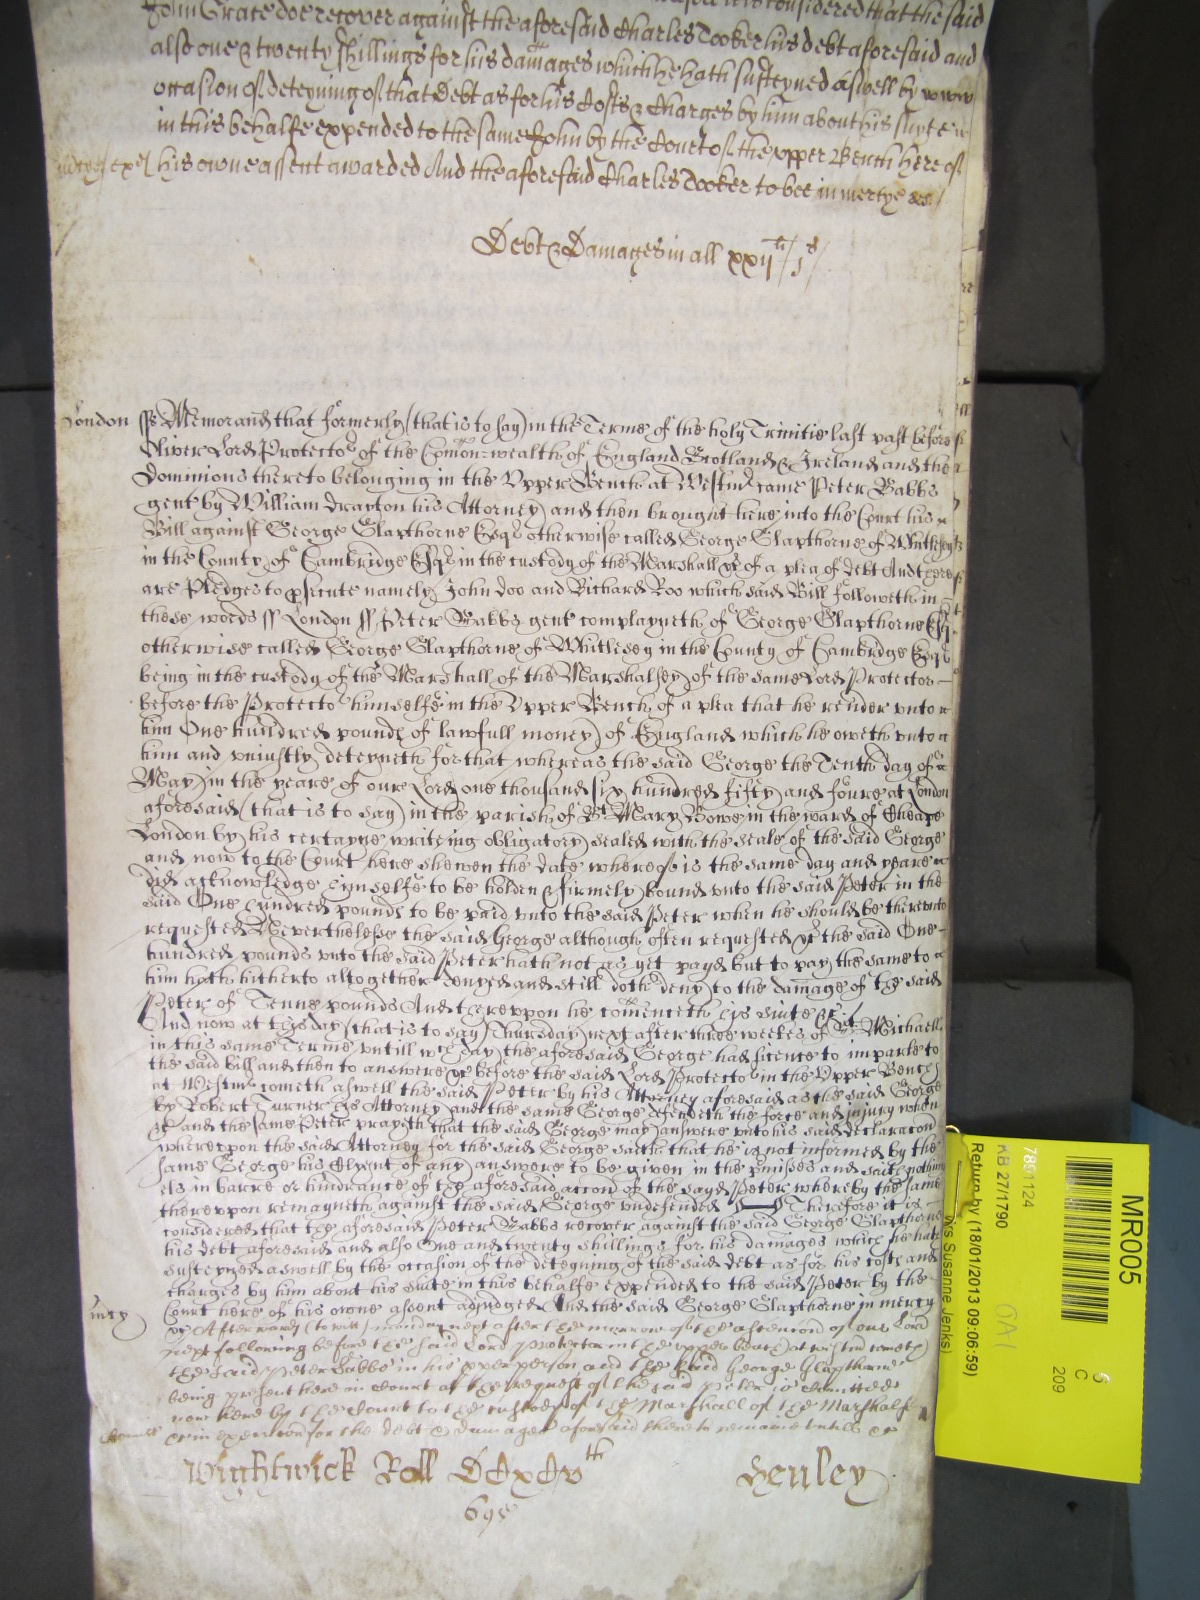 considered that the said
John Grace doe recover against the aforesaid Charles Tooker his debt aforesaid and
also one & twenty shillings for his damages which he hath susteyned aswell by
occasion of deteyning of that Debt as for his Costs & Charges by him about his suyte
in this behalfe expended to the same John by the Court of the upper Bench here of
his owne assent awarded And the aforesaid Charles Tooker to bee in mercye &c
Debt & Damages in all xxij li j s
London ss Memorand that formerly (that is to say) in the Terme of the holy Trinitie last past before
Oliver Lord Protector of the Comon=wealth of England Scotland & Ireland and the
Dominions thereto belonging in the Upper Bench at Westmr came Peter Babbs
gent by William Drayton his Attorney and then brought here into the Court his
Bill against George Glapthorne Esqr otherwise called George Glapthorne of Whitlesey
in the County of Cambridge Esqr in the custody of the Marshall &c of a plea of debt And there
are Pledges to psecute namely John Doo and Richard Roo which said Bill followeth in
these words ss London ss Peter Babbs gent complayneth of George Glapthorne Esqr
otherwise called George Glapthorne of Whitlesey in the County of Cambridge Esqr
being in the custody of the Marshall of the Marshalsey of the same Lord Protector
before the Protector himselfe in the Upper Bench of a plea that he render unto
him One hundred pounds of lawfull money of England which he oweth unto
him and uniustly deteyneth for that whereas the said George the Tenth day of
May in the yeare of our Lord one thousand six hundred fifty and foure at London
aforesaid (that is to say) in the parish of St Mary Bowe in the ward of Cheape
London by his certayne writeing obligatory sealed with the seale of the said George
and now to the Court here shewen the date whereof is the same day and yeare
did acknowledge himselfe to be holden & firmely bound unto the said Peter in the
said One hundred pounds to be paid unto the said Peter when he should be thereunto
requested Neverthelesse the said George although often requested &c the said One
hundred pounds unto the said Peter hath not as yet payd but to pay the same to
him hath hitherto altogether denyed and still doth deny to the damage of the said
Peter of Tenne pounds And thereupon he comenceth his suite &c
And now at this day (that is to say) Thursday next after three weekes of St Michaell
in this same Terme untill wch day the aforesaid George had licence to imparle to
the said bill and then to answere &c before the said Lord Protector in the Upper Bench
at Westmr cometh aswell the said Peter by his Attorney aforesaid as the said George
by Robert Turner his Attorney and the same George defendeth the force and injury when
&c and the same Peter prayeth that the said George may answere unto his said declaracon
whereupon the said Attorney for the said George saith that he is not informed by the
same George his Clyent of any answere to be given in the pmisses and saith nothing
els in barre or hindrance of the aforesaid accon of the sayd Peter whereby the same
thereupon remayneth against the said George undefended Therefore it is
considered that the aforesaid Peter Babbs recover against the said George Glapthorne
his debt aforesaid and also One and twenty shillings for his damages which he hath
susteyned aswell by the occasion of the deteyning of the said debt as for his costs and
charges by him about his suite in this behalfe expended to the said Peter by the
Court here of his owne assent adjudged And the said George Glapthorne in mercy
mercy
&c Afterwards (to witt) munday next after the morrow of the ascencion of our Lord
next following before the said Lord protector in the upper bench at westmr cometh
the said Peter Babbs in his pper person and the said George Glapthorne
being present here in Court at the request of the said Peter is comitted
now here by the Court to the custody of the Marshall of the Marshalsey
&c in execution for the debt & damages aforesaid there to remaine untill &c
Wightwick Roll DCxCv th Henley
695
MR005
6
C
209
7851124
KB 27/1790
Return by (18/01/2013 09:06:59)
Susanne Jenks)